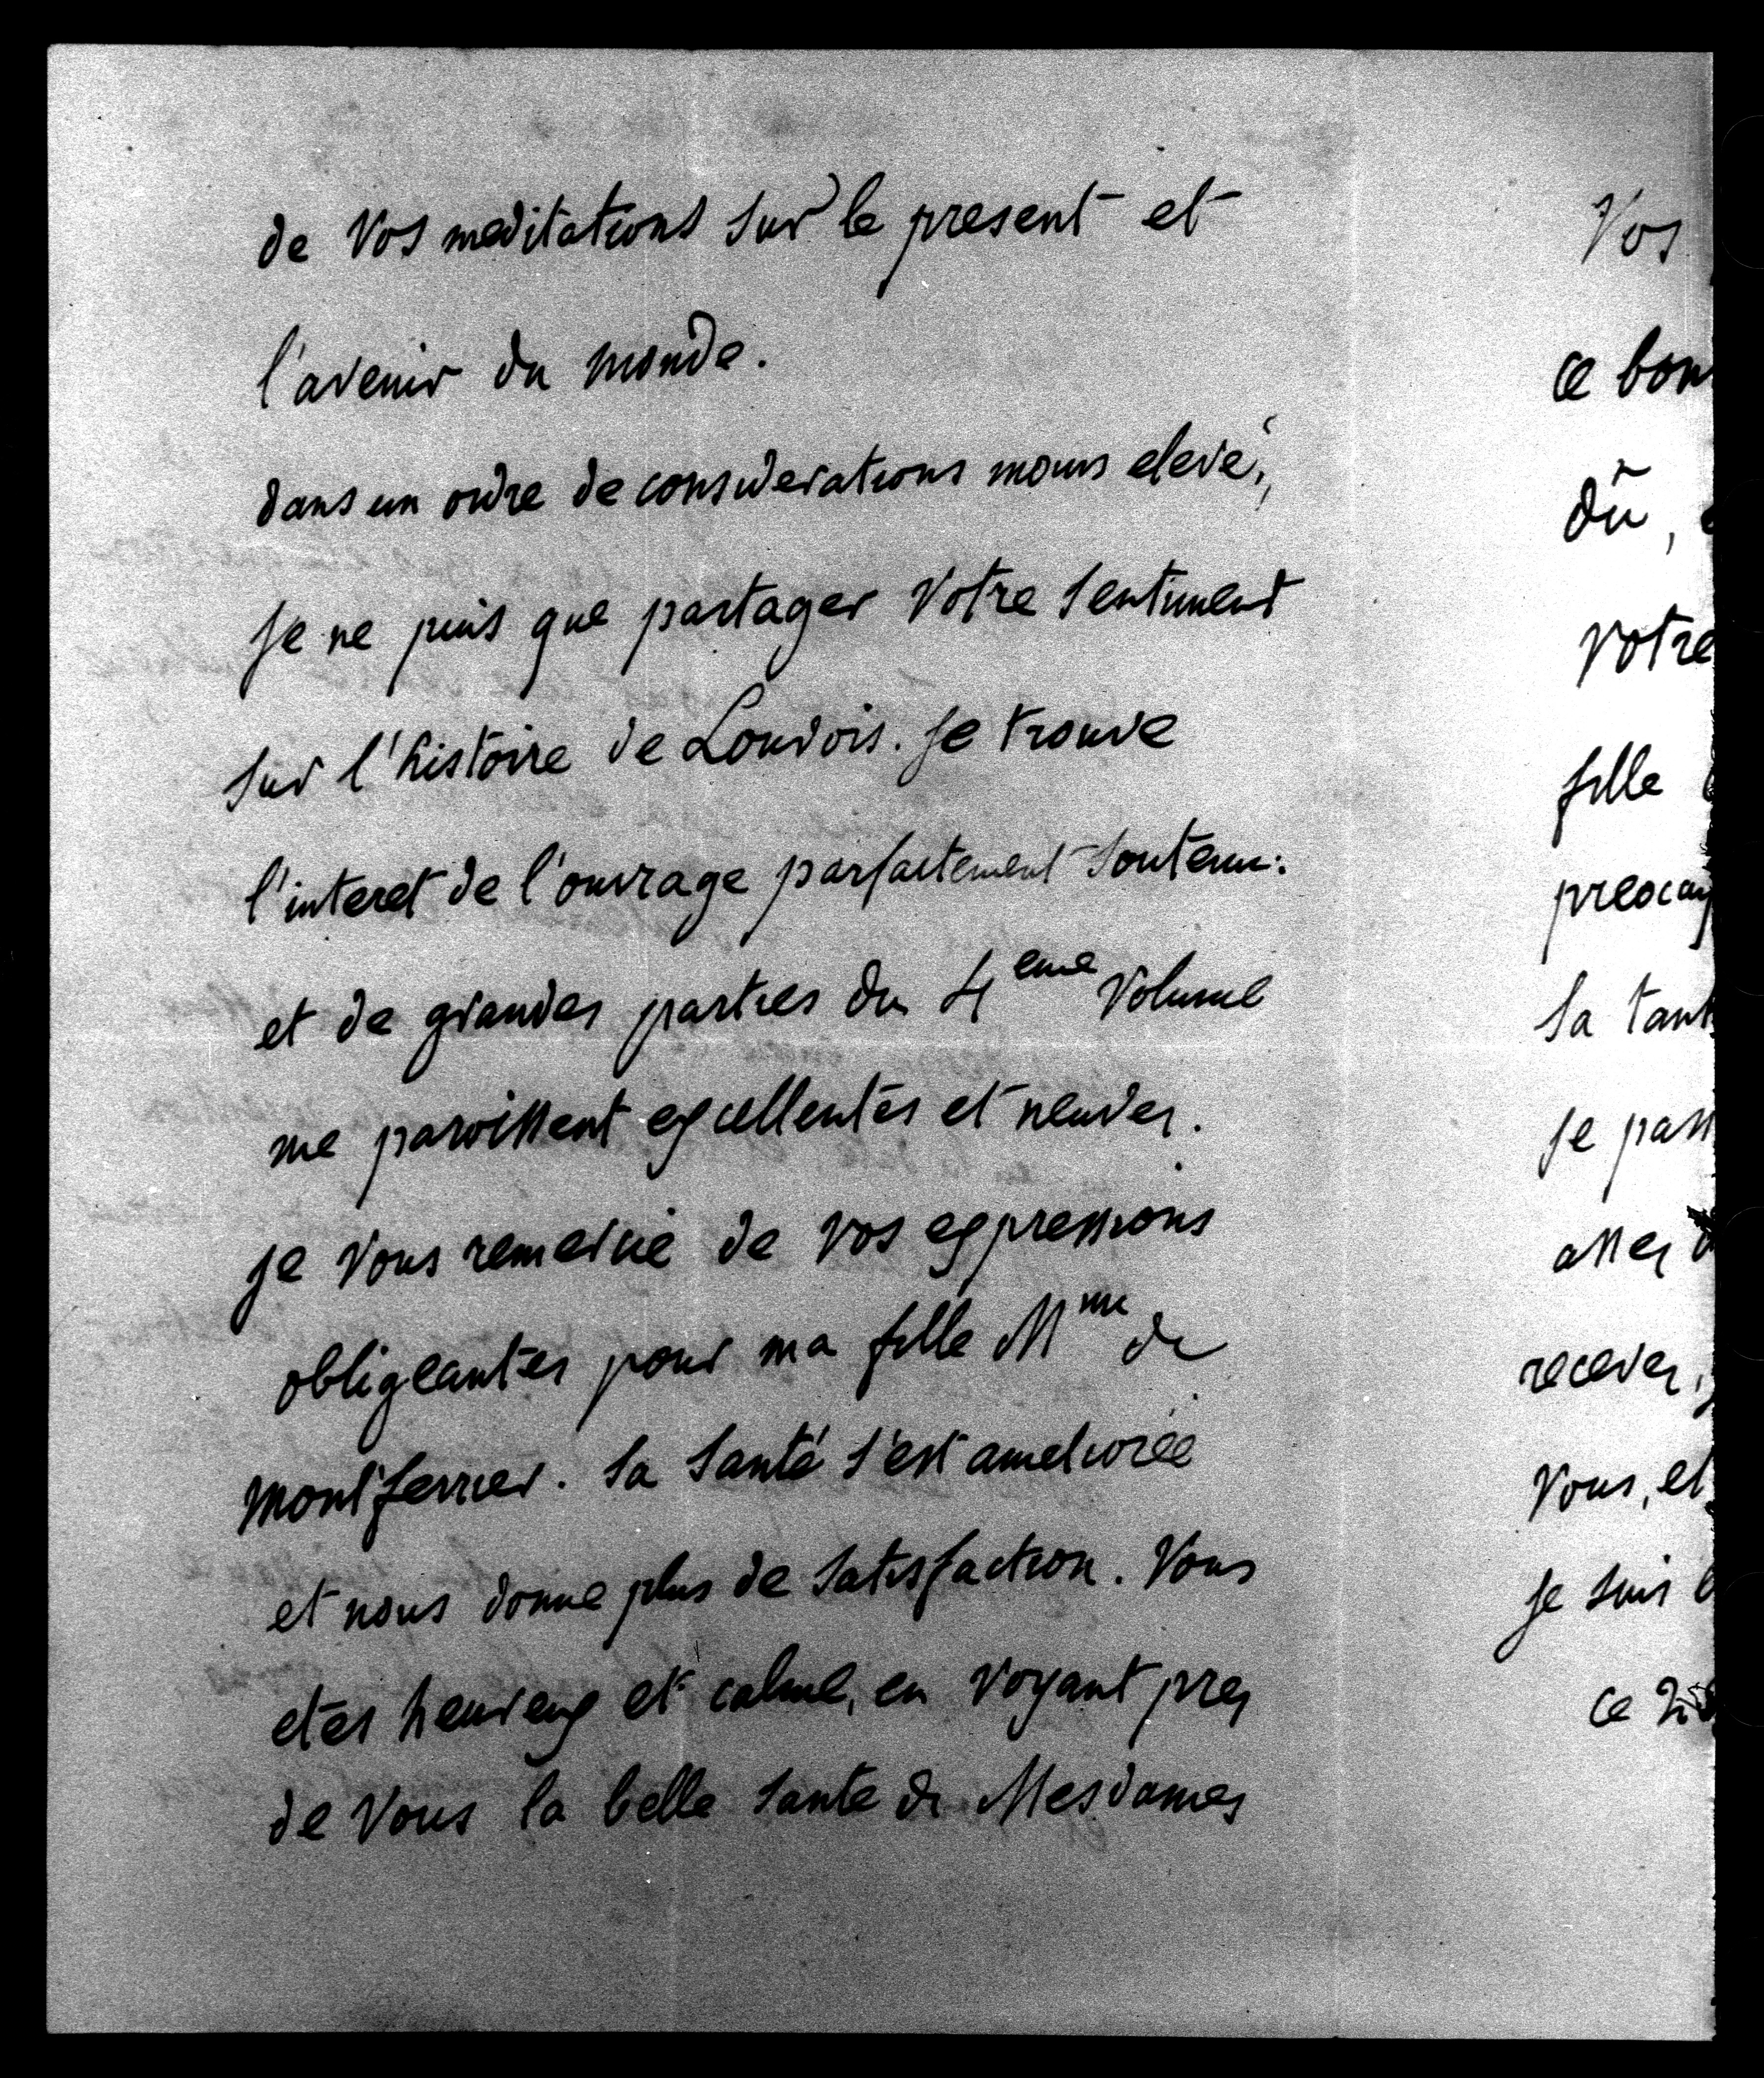 de Vos meditations sur le present et
l'avenir du monde.
dans un ordre de considerations moins elevé,
je ne puis que partager Votre sentiment
sur l'histoire de Louvois. je trouve
l'interet de l'ouvrage parfaitement soutenu:
et de grandes parties du 4eme Volume
me paroissent excellentes et neuves.
je Vous remercie de Vos expressions
obligeantes pour ma fille Mme de
montferrier. sa santé s'est ameliorée
et nous donne plus de satisfaction. Vous
etes heureux et calme, en Voyant pres
de Vous la belle sante de Mesdames
Vos
ce bon
dû,
Votre
fille
preocup
sa tant
je pass
assez
recevez,
Vous, et
je suis
ce